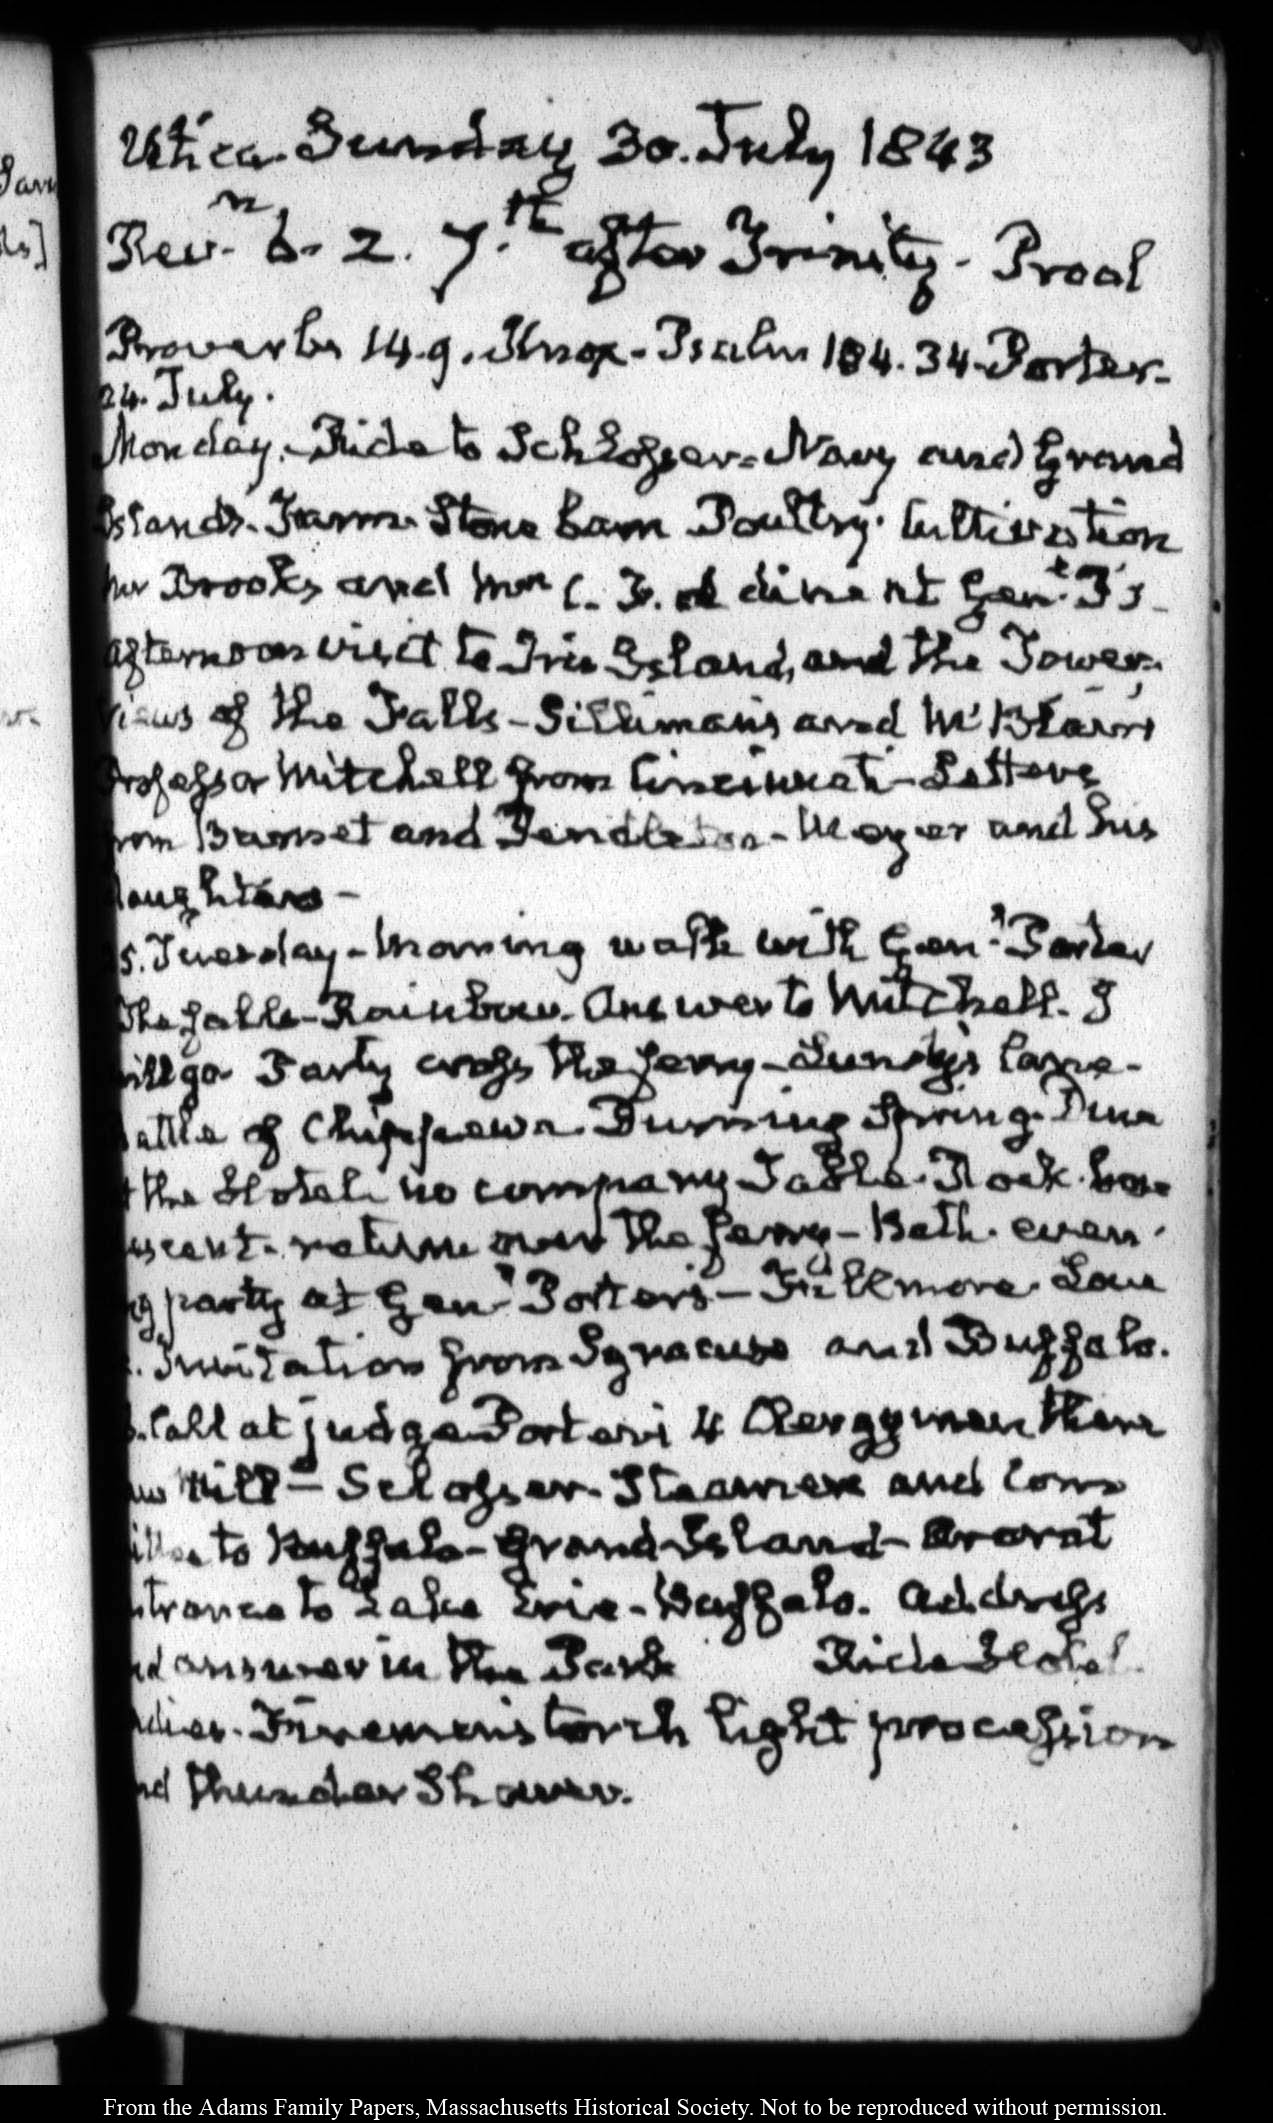 Utica. Sunday 30. July 1843
Rev.n 6. 2. 7.th after Trinity. Proal
Proverbs 14.9. Knox. Psalm 104.34. Porter.
24. July.
Monday. Ride to Schlosser. Navy and Grand
Islands. Farm. Stone barn Poultry. Cultivation
Mr Brooks and Mrs C. dine at Genl. P's.
afternoon visit to Iris Island, and the Tower.
Views of the Falls - Silliman's and Mc Blair's
Professor Mitchell from Cincinnati - Letters
from Barnet and Pendleton - Meyer and his
daughters -
25. Tuesday - Morning walk with Genl. Porter
The falls - Rainbow. Answer to Mitchell. I
will go Party cross the ferry - Lundy's lane -
Battle of Chippewa. Burning Spring. Dine
at the Hotel. no company Table. Rock.
descent. return over the ferry - Bath. even
ing party at Genl. Porter's - Fillmore. Love
Invitation from Syracuse and Buffalo.
Call at judge Porter's 4 Clergymen there
Mill - Schlosser. Steamer and Cons
to Buffalo - Grand Island - Ararat
Entrance to Lake Erie - Buffalo. Address
and answer in the Park Ride Hotel.
Ladies. Firemen's torch light procession
and thunder Shower.
From the Adams Family Papers, Massachusetts Historical Society. Not to be reproduced without permission.